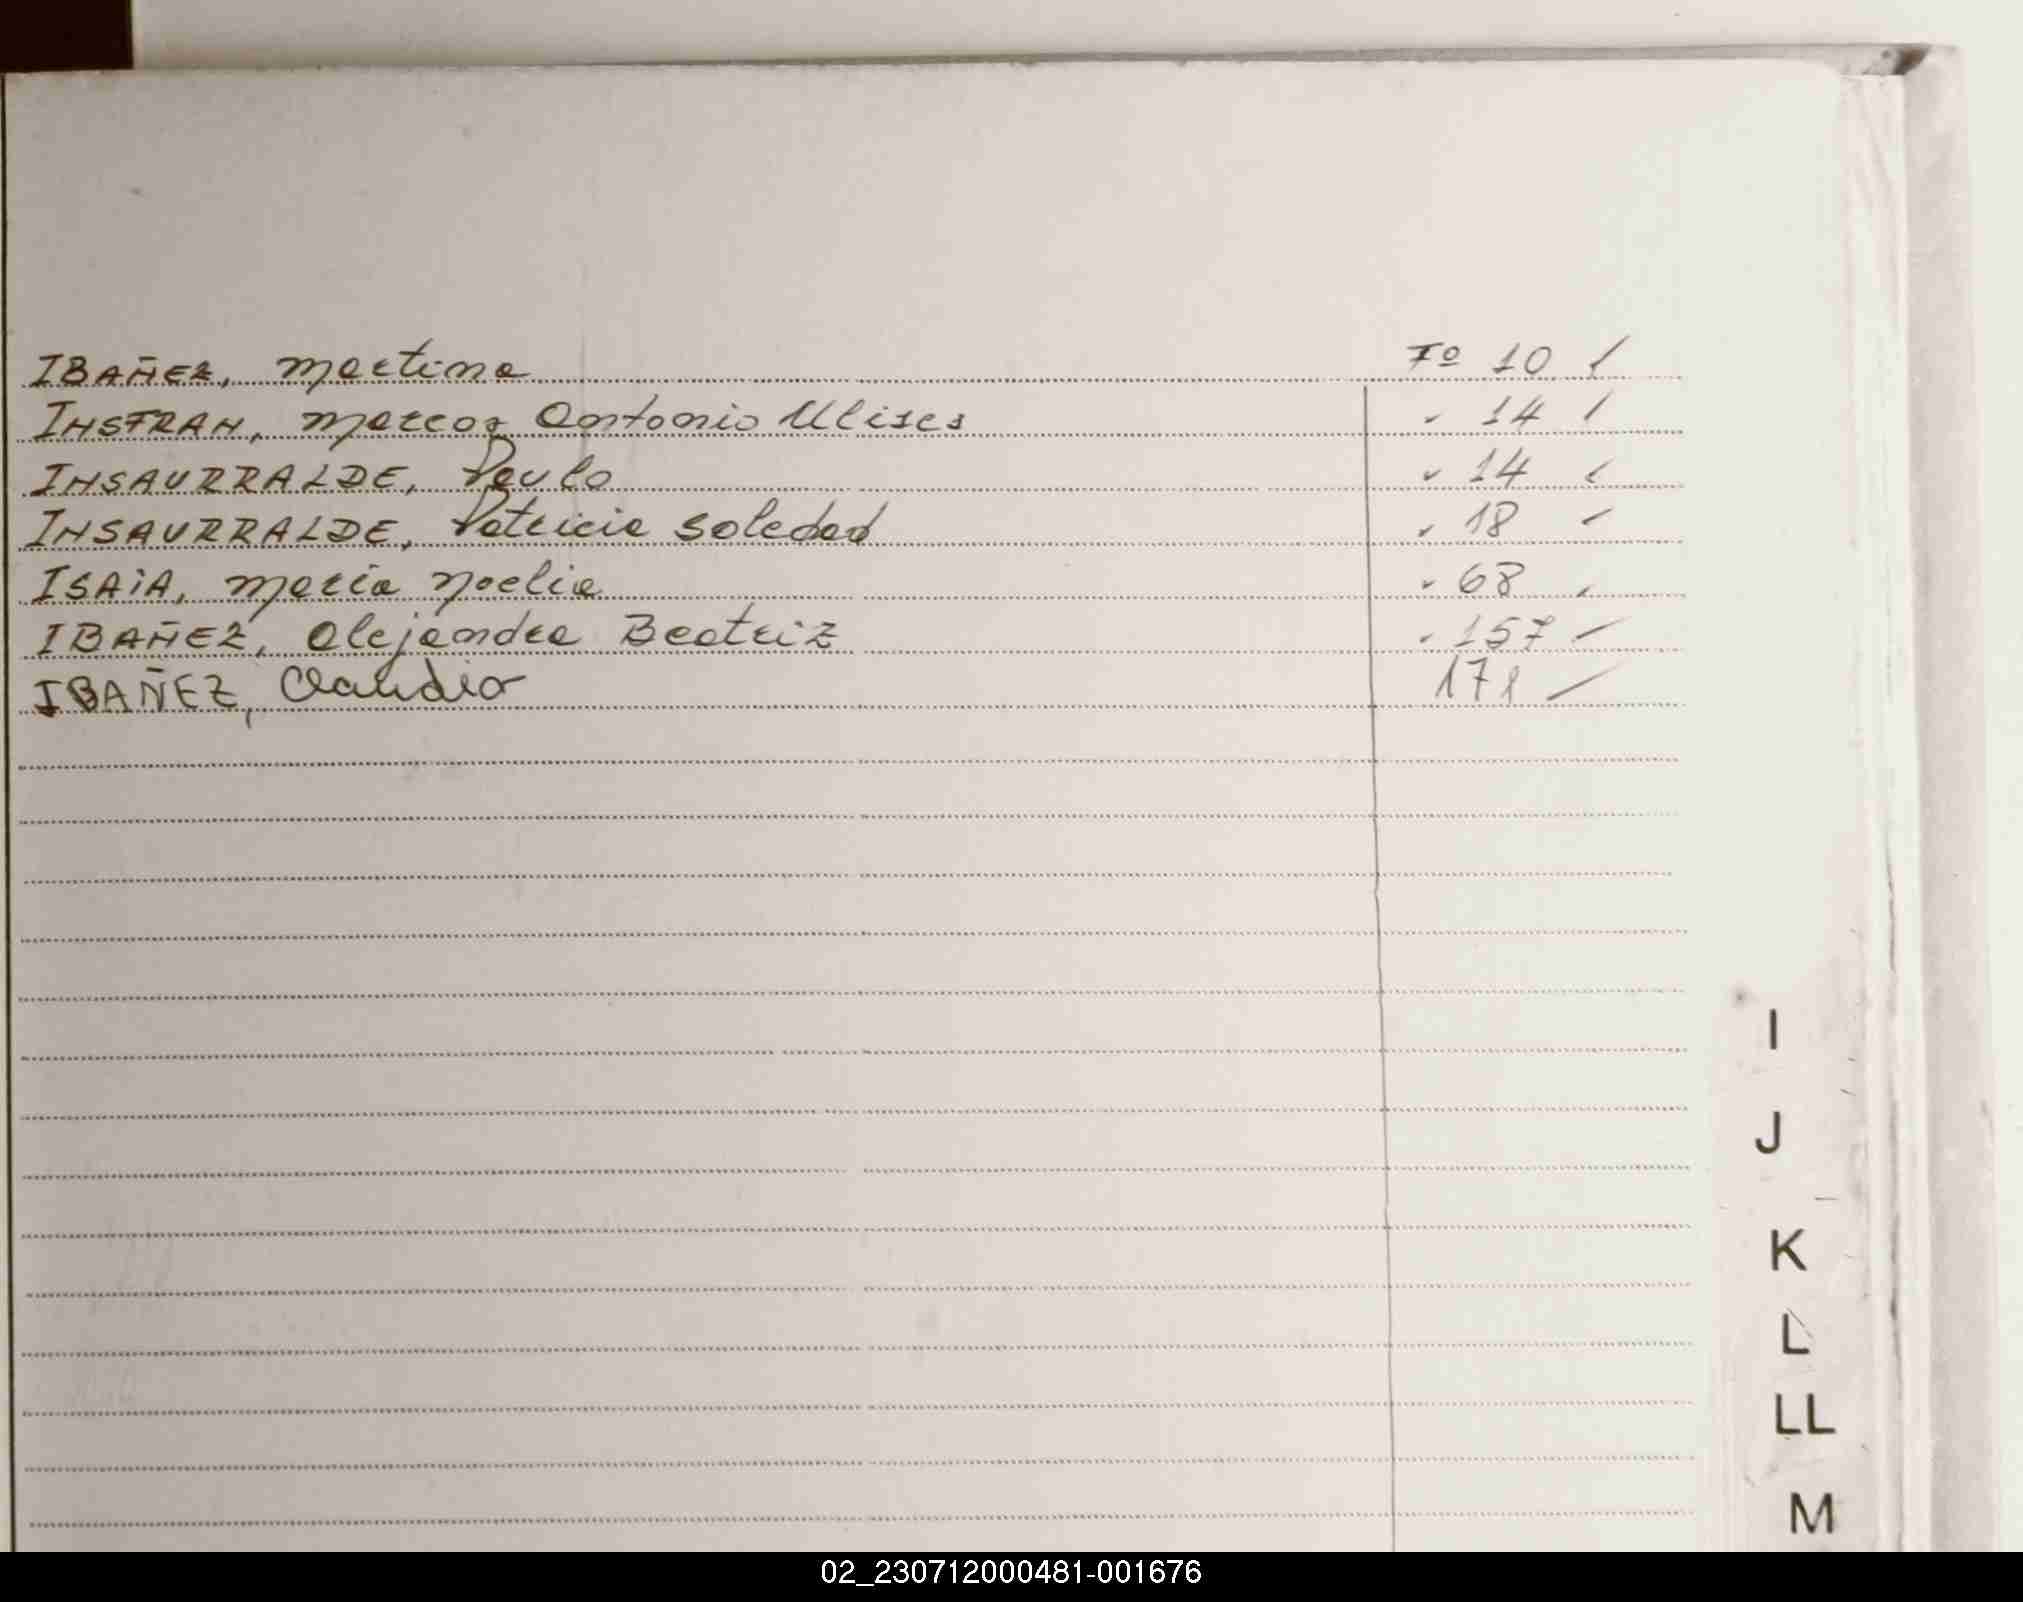 IBAÑEZ, Martina Fº 10
INSTRAN, Marcos Antonio Ulises " 14
INSAURRALDE, Paulo " 14
INSAURRALDE, Patricia Soledad " 18
ISAIA, Maria Noelia " 68
IBAÑEZ, Alejandra Beatriz " 157
IBAÑEZ, Claudio
I
J
K
L
LL
M
02_230712000481-001676